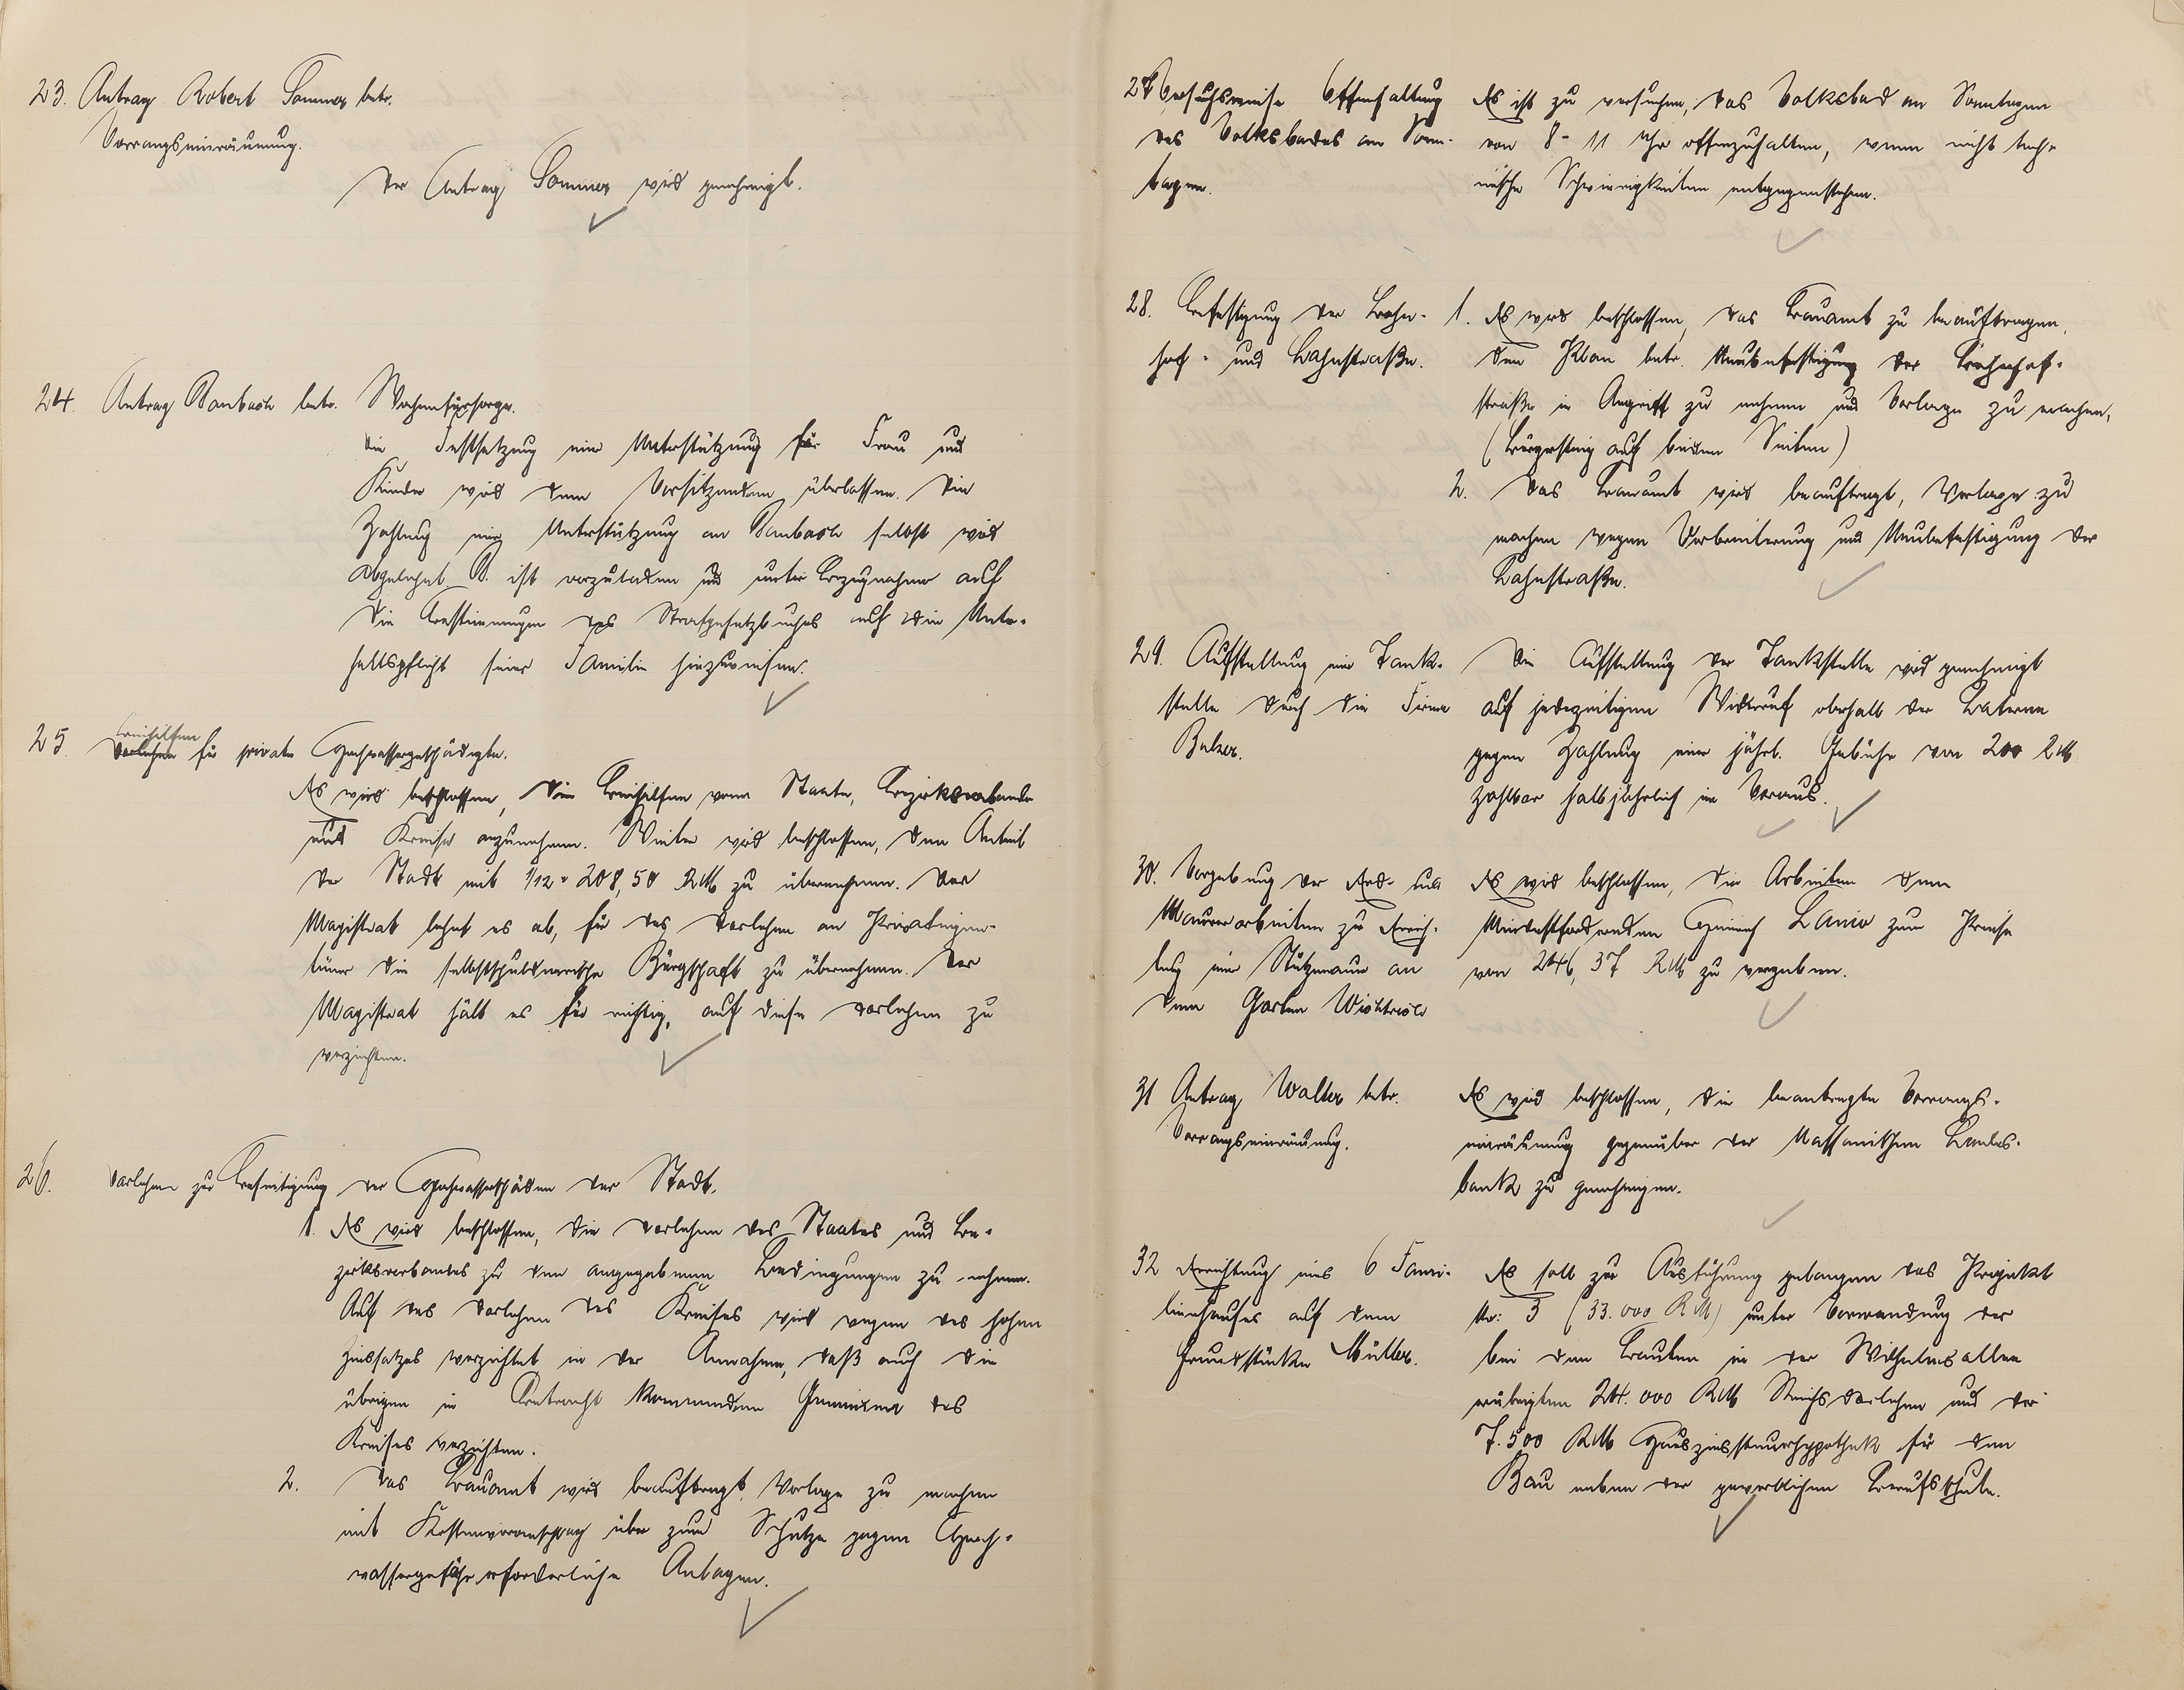 23. Antrag Robert Sommer betr.
Vorrangseinräumung.
Der Antrag Sommer wird genehmigt.
24. Antrag Bambach betr. Wochenfürsorge.
Die Festsetzung einer Unterstützung für Frau und
Kinder wird dem Vorsitzenden überlassen. Die
Zahlung einer Unterstützung an Bambach selbst wird
abgelehnt. B. ist vorzuladen und unter Bezugnahme auf
die Bestimmungen des Strafgesetzbuches auf die Unter-
haltspflicht seiner Familie hinzuweisen.
Beihilfen
25. Darlehen für private Hochwassergeschädigte.
Es wird beschlossen, die Beihilfen vom Staate, Bezirksverbande
und Kreise anzunehmen. Weiter wird beschlossen, den Anteil
der Stadt mit 1/12 = 208,50 RM zu übernehmen. Der
Magistrat lehnt es ab, für das Darlehen an Privateigen-
tümer die selbstschuldnerische Bürgschaft zu übernehmen. Der
Magistrat hält es für richtig, auf diese Darlehen zu
verzichten.
26. Darlehen zur Beseitigung der Hochwasserschäden der Stadt.
1. Es wird beschlossen, die Darlehen des Staates und Be-
zirksverbandes zu den angegebenen Bedingungen zu nehmen.
Auf das Darlehen des Kreises wird wegen des hohen
Zinssatzes verzichtet in der Annahme, daß auch die
übrigen in Betracht kommenden Gemeinden des
Kreises verzichten.
2. Das Bauamt wird beauftragt, Vorlage zu machen
mit Kostenvoranschlag über zum Schutze gegen Hoch-
wassergefahr erforderliche Anlagen.
27. Versuchsweise Offenhaltung
des Volksbades an Sonn-
tagen.
Es ist zu versuchen, das Volksbad an Sonntagen
von 8 - 11 Uhr offenzuhalten, wenn nicht tech-
nische Schwierigkeiten entgegenstehen.
28. Befestigung der Bahn-
hof- und Lahnstraße.
1. Es wird beschlossen, das Bauamt zu beauftragen,
den Plan betr. Neubefestigung der Bahnhof-
straße in Angriff zu nehmen und Vorlage zu machen,
(Bürgersteig auf beiden Seiten)
2. Das Bauamt wird beauftragt, Vorlage zu
machen wegen Verbreiterung und Neubefestigung der
Lahnstraße.
29. Aufstellung einer Tank-
stelle durch die Firma
Balzer.
Die Aufstellung der Tankstelle wird genehmigt
auf jederzeitigen Widerruf oberhalb der Laterne
gegen Zahlung einer jährl. Gebühr von 200 RM
zahlbar halbjährlich im Voraus.
30. Vergebung der Erd- und
Maurerarbeiten zu Errich-
tung einer Stützmauer an
dem Garten
Es wird beschlossen, die Arbeiten dem
Mindestfordernden Heinrich Lanio zum Preise
von 246,37 RM zu vergeben.
31 Antrag Walter betr.
Vorrangseinräumung.
Es wird beschlossen, die beantragte Vorrangs-
einräumung gegenüber der Nassauischen Landes-
bank zu genehmigen.
32 Errichtung eines 6 Fami-
lienhauses auf dem
Grundstücke Müller.
Es soll zur Ausführung gelangen das Projekt
Nr: 3 (33.000 RM) unter Verwendung der
bei den Bauten in der Wilhelmsallee
erübrigten 24.000 RM Reichsdarlehen und der
7.500 RM Hauszinssteuerhypothek für den
Bau neben der gewerblichen Berufsschule.